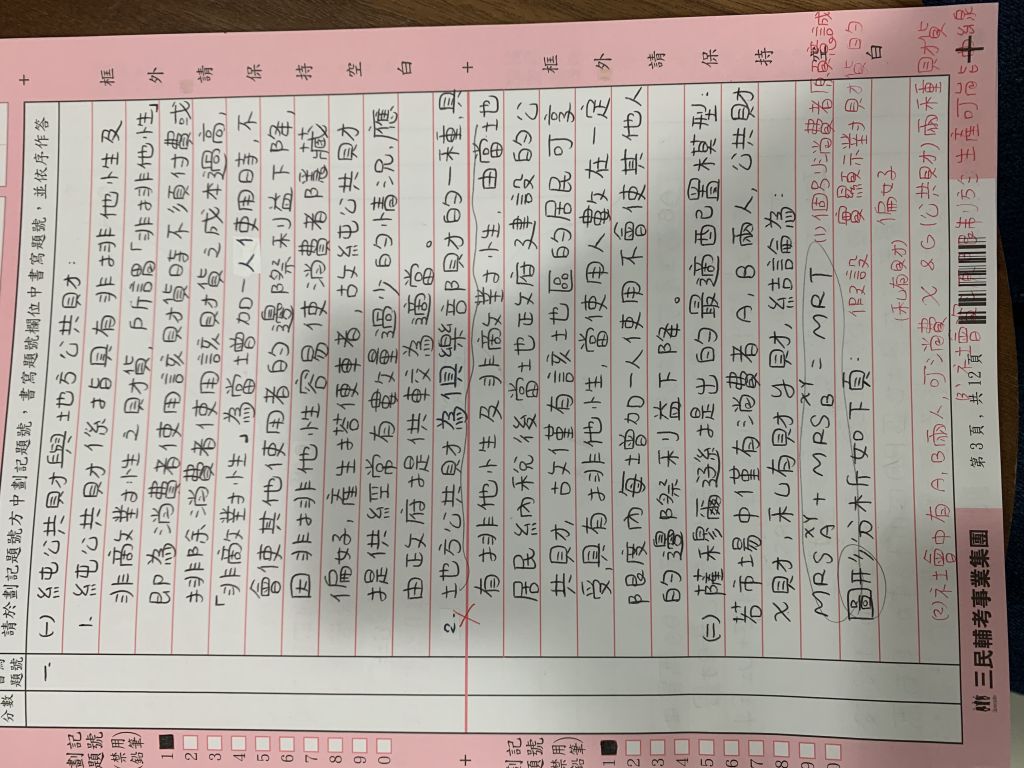 請於劃記題號方中劃記題號，書寫題號欄位中書寫題號，並依序作答
分數
題號
一、
(一) 純公共財與地方公共財：
1. 純公共財係指具有非排他性及
非敵對性之財貨，所謂「非排他性」
即為消費者使用該財貨時不須付費或
排除消費者使用該財貨之成本過高，
「非敵對性」為當增加一人使用時，不
會使其他使用者的邊際利益下降，
因非排他性容易使消費者隱藏
偏好，產生搭便車者，故純公共財
提供經常有數量過少的情況，應
由政府提供較為適當。
2. 地方公共財為俱樂部財的一種，具
有排他性及非敵對性，由當地
居民納稅後當地政府建設的公
共財，故僅有該地區的居民可享
受，具有排他性，當使用人數在一定
限度內每增加一人使用不會使其他人
的邊際利益下降。
(二) 薩穆爾遜提出的最適配置模型：
若市場中僅有消費者A，B兩人，公共財
X財，私有財Y財，結論為：
MRS_A^XY + MRS_B^XY = MRT
圖形分析如下頁：
假設
(1) 個別消費者願意誠
實顯示對財貨的
偏好
(私有財)
(2) 社會中有A，B兩人，可消費X & G(公共財)兩種財貨
框外請保持空白
框外請保持空白
劃記
題號
(禁用
鉛筆)
1
2
3
4
5
6
7
8
9
0
劃記
題號
(禁用
鉛筆)
1
2
3
4
5
6
7
8
9
0
三民輔考事業集團
第3頁，共12頁